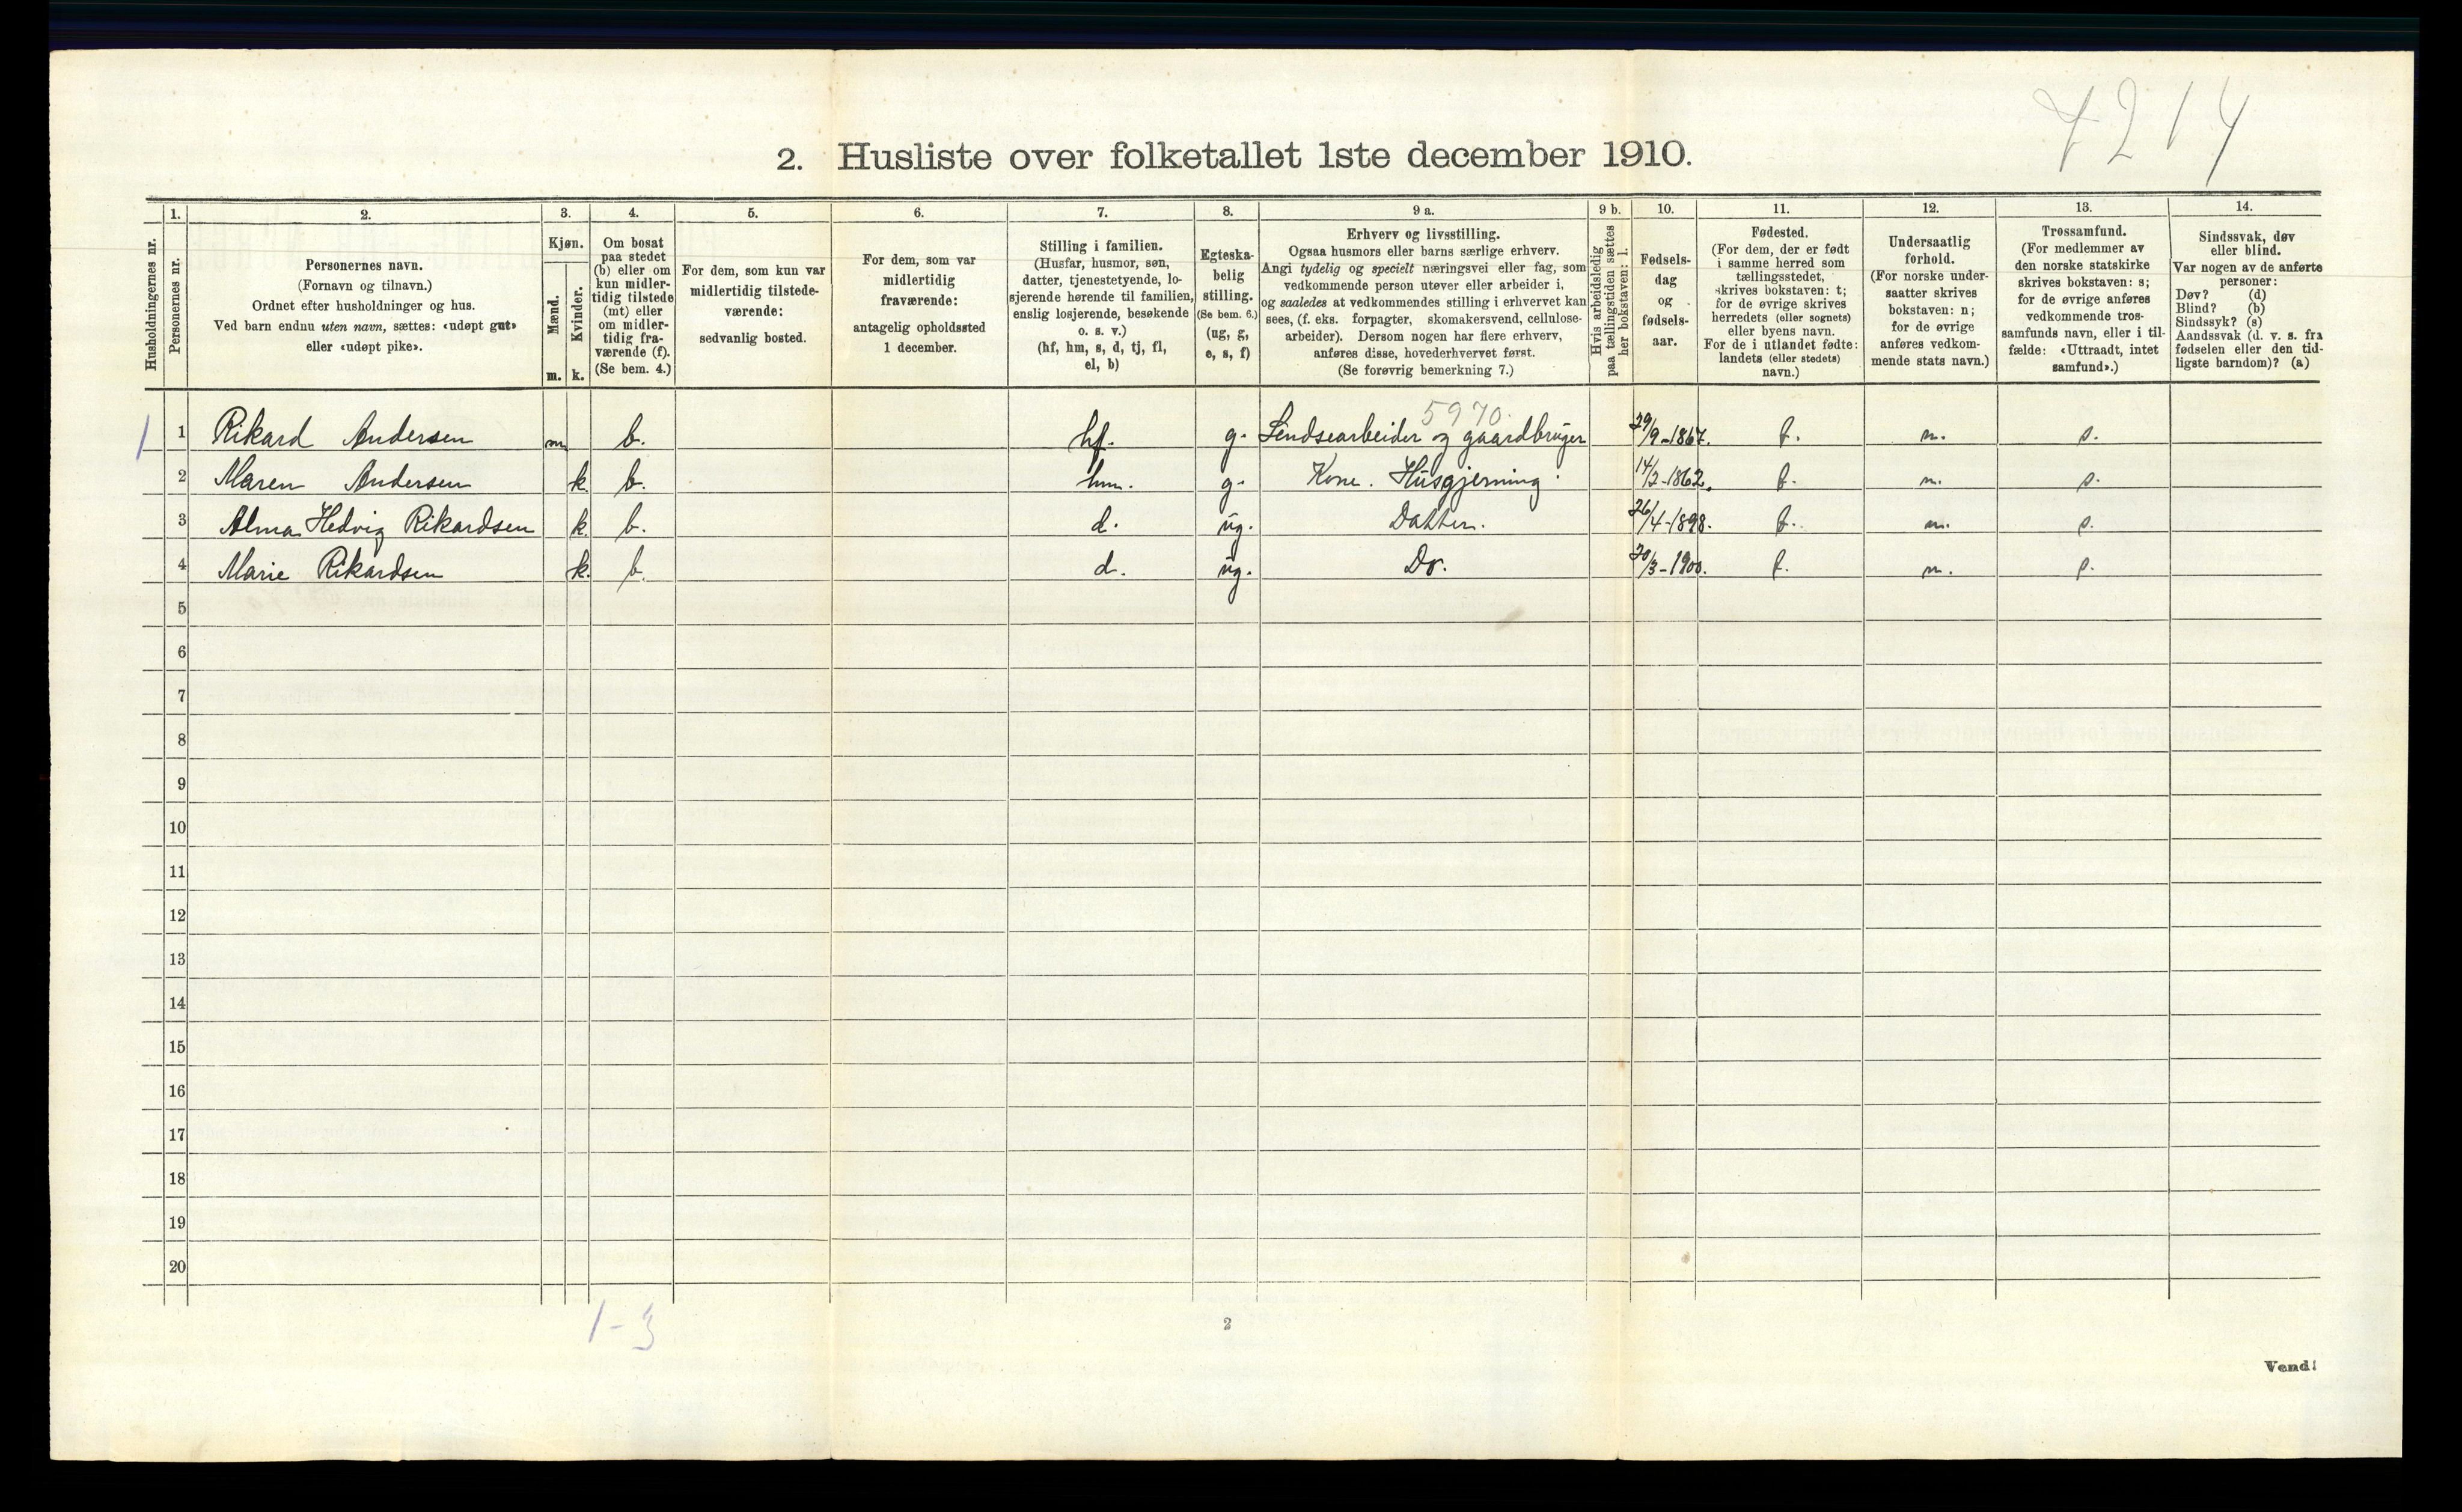 7214
2. Husliste over folketallet 1ste december 1910.
Husholdningernes nr.
1.
Personernes nr.
2.
Personernes navn.
(Fornavn og tilnavn.)
Ordnet efter husholdninger og hus.
Ved barn endnu uten navn, sættes: «udøpt gut»
eller «udøpt pike».
3.
Kjøn.
Mænd.
m.
Kvinder.
k.
4.
Om bosat
paa stedet
(b) eller om
kun midler-
tidig tilstede
(mt) eller
om midler-
tidig fra-
værende (f).
(Se bem. 4.)
5.
For dem, som kun var
midlertidig tilstede-
værende:
sedvanlig bosted.
6.
For dem, som var
midlertidig
fraværende:
antagelig opholdssted
1 december.
7.
Stilling i familien.
(Husfar, husmor, søn,
datter, tjenestetyende, lo-
sjerende hørende til familien,
enslig losjerende, besøkende
o. s. v.)
(hf, hm, s, d, tj, fl,
el, b)
8.
Egteska-
belig
stilling.
(Se bem. 6.)
(ug, g,
e, s, f)
9 a.
Erhverv og livsstilling.
Ogsaa husmors eller barns særlige erhverv.
Angi tydelig og specielt næringsvei eller fag, som
vedkommende person utøver eller arbeider i,
og saaledes at vedkommendes stilling i erhvervet kan
sees, (f. eks. forpagter, skomakersvend, cellulose-
arbeider). Dersom nogen har flere erhverv,
anføres disse, hovederhvervet først.
(Se forøvrig bemerkning 7.)
9 b.
Hvis arbeidsledig
paa tællingstiden sættes
her bokstaven: l.
10.
Fødsels-
dag
og
fødsels-
aar.
11.
Fødested.
(For dem, der er født
i samme herred som
tællingsstedet,
skrives bokstaven: t;
for de øvrige skrives
herredets (eller sognets)
eller byens navn.
For de i utlandet fødte:
landets (eller stedets)
navn.)
12.
Undersaatlig
forhold.
(For norske under-
saatter skrives
bokstaven: n;
for de øvrige
anføres vedkom-
mende stats navn.)
13.
Trossamfund.
(For medlemmer av
den norske statskirke
skrives bokstaven: s;
for de øvrige anføres
vedkommende tros-
samfunds navn, eller i til-
fælde: «Uttraadt, intet
samfund».)
14.
Sindssvak, døv
eller blind.
Var nogen av de anførte
personer:
Døv? (d)
Blind? (b)
Sindssyk? (s)
Aandssvak (d. v. s. fra
fødselen eller den tid-
ligste barndom)? (a)
5970.
1 1 Rikard Andersen m b. hf. g. Sindsearbeider og gaardbruger 29/9-1867. t. n. s.
2 Maren Andersen k b. hm. g. Kone. Husgjerning. 14/2-1862. t. n. s.
3 Alma Hedvig Rikardsen k. b. d. ug. Datter. 26/4-1898. t. n. s.
4 Marie Rikardsen k. b. d. ug. Do. 20/3-1900. t. n. s.
5
6
7
8
9
10
11
12
13
14
15
16
17
18
19
20
1-3
2
Vend!